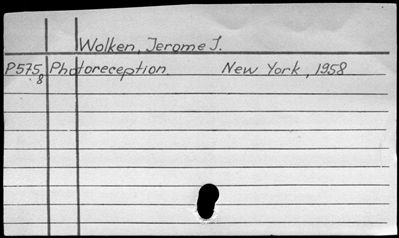 Wolken, Jerome J.
P575 Photoreception New York, 1958
8